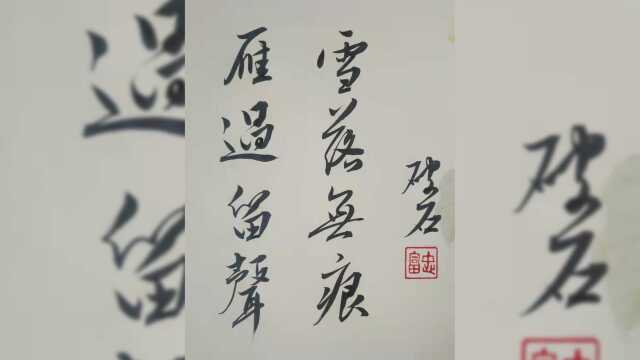 雁過留聲
雪落無痕
破石